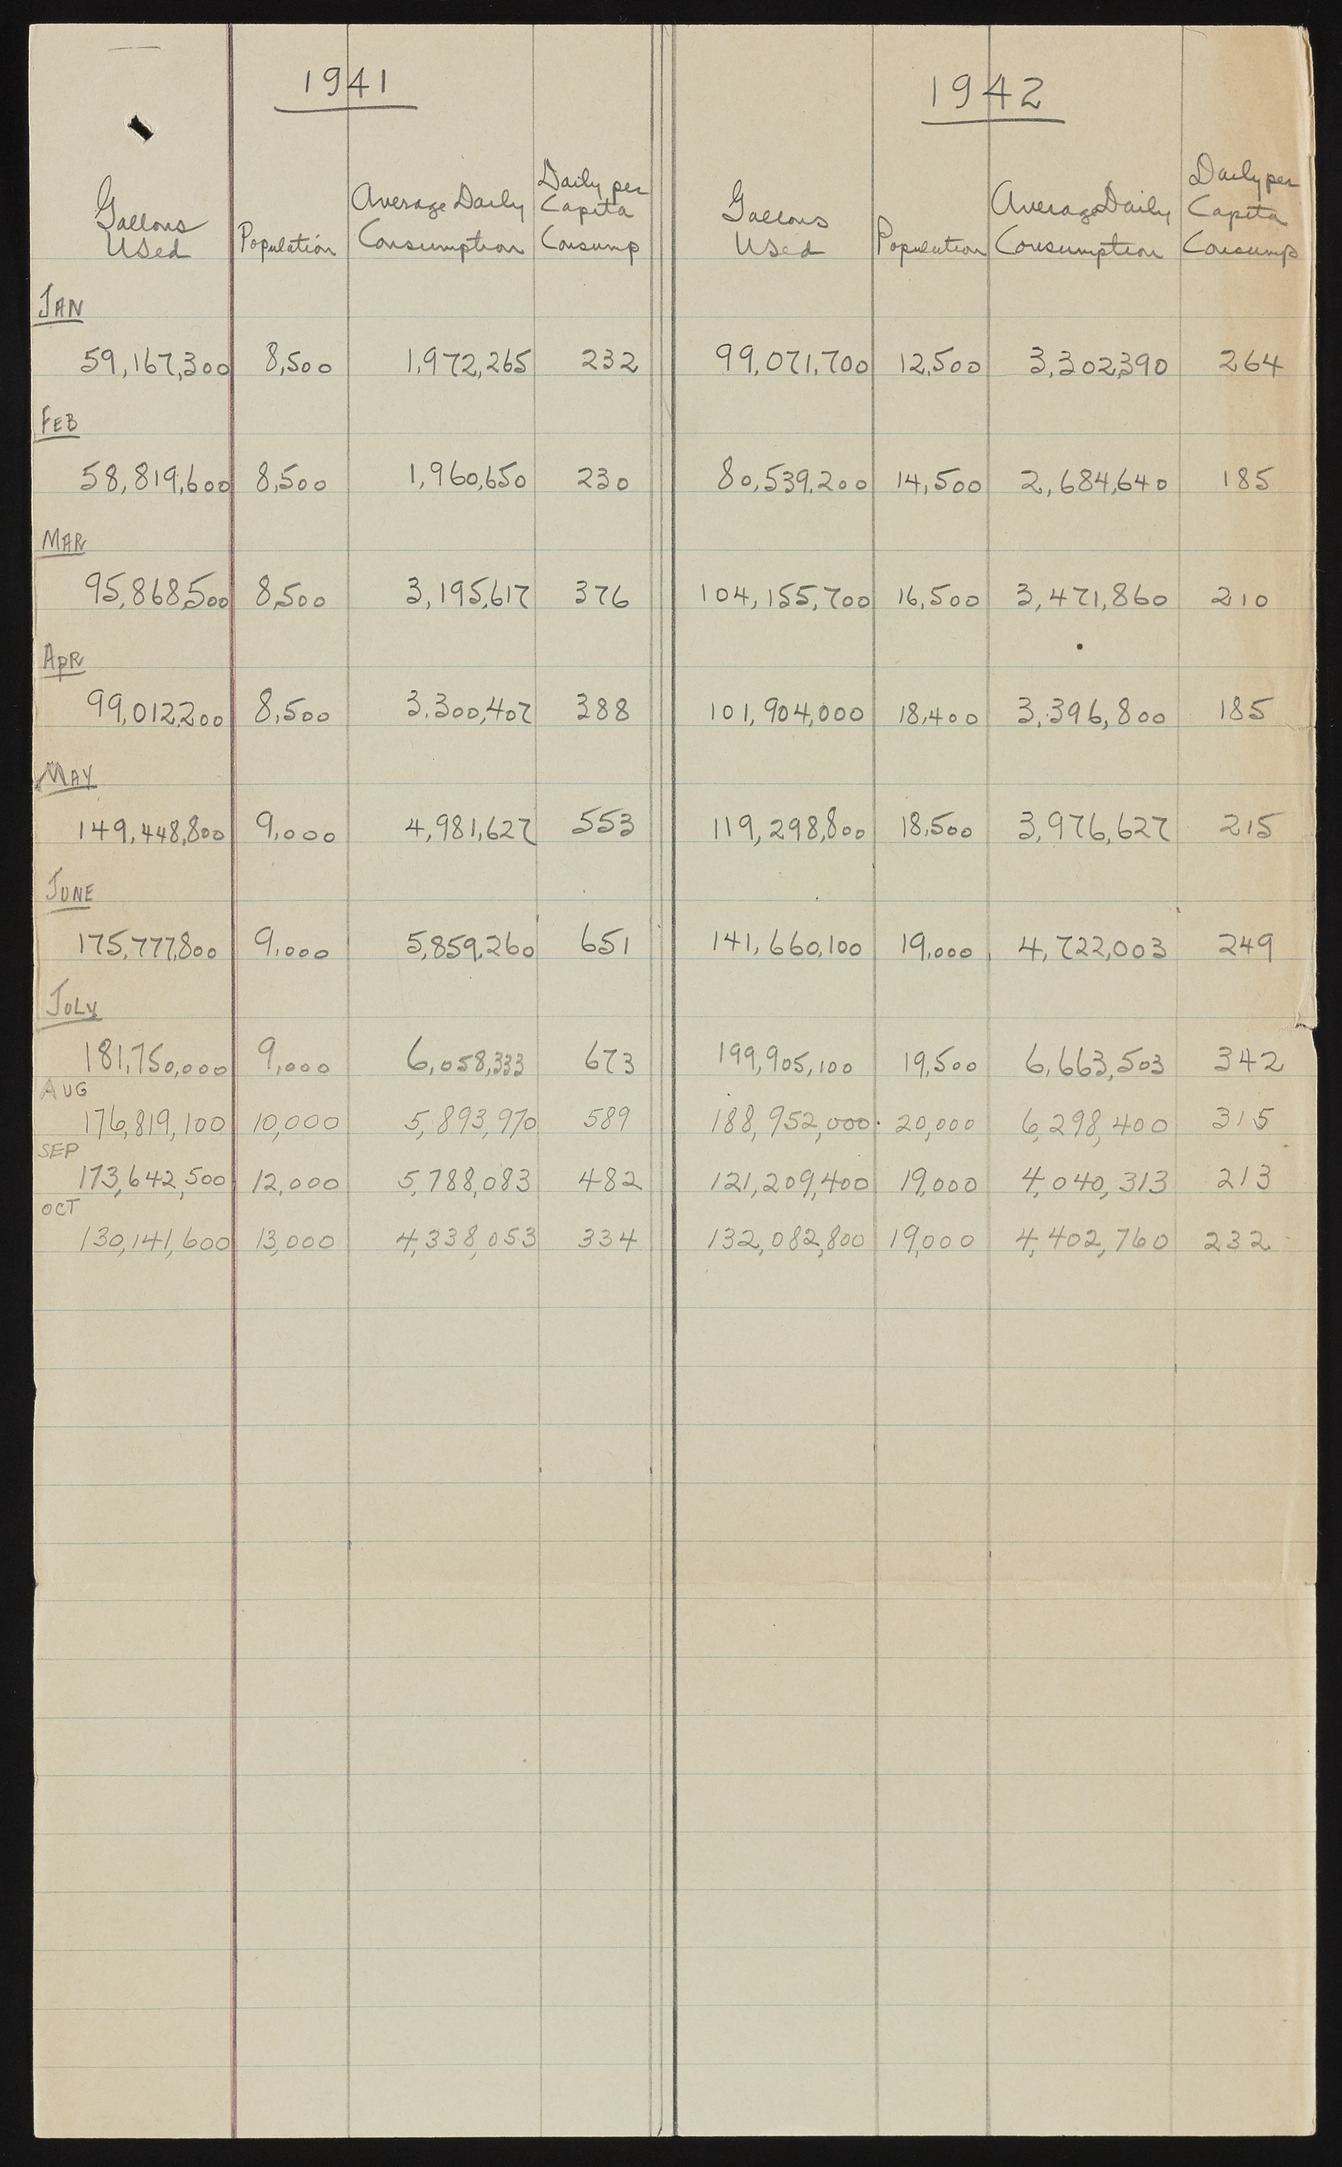 1941 1942
Gallons Used Population Average Daily Consumption Daily per Capita Consump Gallons Used Population Average Daily Consumption Daily per Capita Consump
JAN
59,167,300 8,500 1,972,265 232 99,071,700 12,500 3,302,390 264
FEB
58,819,600 8,500 1,960,650 230 80,539,200 14,500 2,684,640 185
MAR
95,868,500 8,500 3,195,617 376 104,155,700 16,500 3,471,860 210
APR
99,012,200 8,500 3,300,407 388 101,904,000 18,400 3,396,800 185
MAY
149,448,800 9,000 4,981,627 553 119,298,800 18,500 3,976,627 215
JUNE
175,777,800 9,000 5,859,260 651 141,660,100 19,000 4,722,003 249
JULY
181,750,000 9,000 6,058,333 673 199,905,100 19,500 6,663,503 342
AUG
176,819,100 10,000 5,893,970 589 188,952,000 20,000 6,298,400 315
SEP
173,642,500 12,000 5,788,083 482 121,209,400 19,000 4,040,313 213
OCT
130,141,600 13,000 4,338,053 334 132,082,800 19,000 4,402,760 232